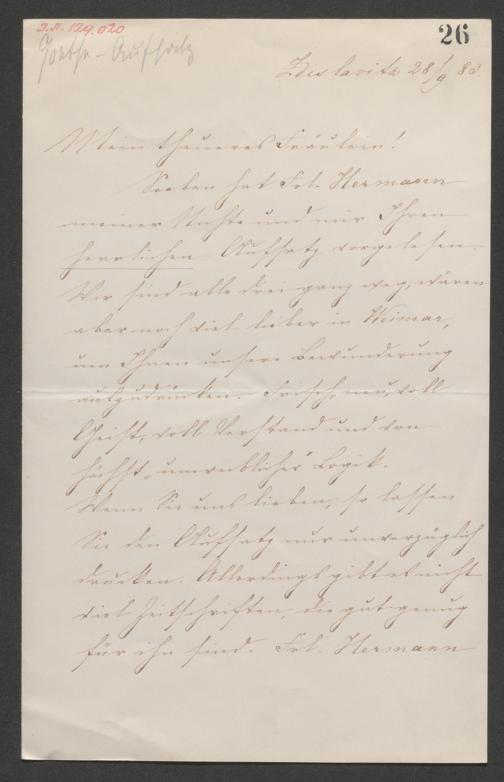 I.N. 129.020
26
Goethe-Aufsatz
Zdislavitz 28/9 83.
Mein theueres Fräulein!
Soeben hat Frl. Hermann
meiner Nichte und mir Ihren
herrlichen Aufsatz vorgelesen.
Wir sind alle drei ganz weg, wären
aber noch viel lieber in Weimar,
um Ihnen unsere Bewunderung
auszudrücken. Frisch, neu, voll
Geist, voll Verstand und von
höchst "unweiblicher" Logik.
Wenn Sie uns lieben, so lassen
Sie den Aufsatz nur unverzüglich
drucken. Allerdings gibt es nicht
viel Zeitschriften, die gut genug
für ihn sind. Frl. Hermann